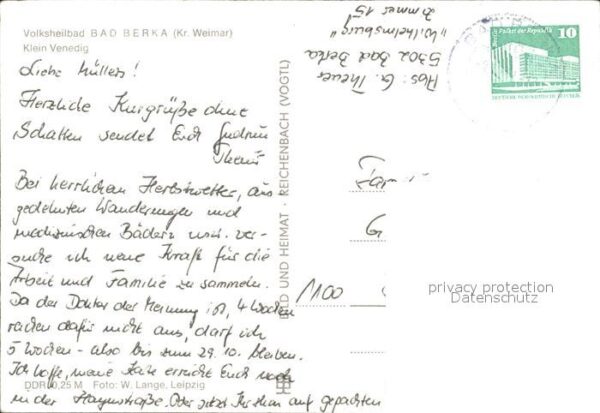 Volksheilbad BAD BERKA (Kr. Weimar)
Klein Venedig
Liebe Müllers!
Herzliche Kurgrüße ohne
Schatten sendet Euch Gudrun
Bei herrlichem Herbstwetter, aus-
gedehnten Wanderungen und
medizinischen Bädern usw. ver-
suche ich neue Kraft für die
Arbeit und Familie zu sammeln.
Da der Doktor der Meinung ist, 4 Wochen
reichen dafür nicht aus, darf ich
5 Wochen - also bis zum 29.10. bleiben.
Ich hoffe, meine Karte erreicht Euch noch
in der Oder sitzt Ihr schon auf gepackten
DDR 0,25 M Foto: W. Lange, Leipzig
BILD UND HEIMAT · REICHENBACH (VOGTL)
Abs: G.
5302 Bad Berka
"Wilhelmsburg"
Zimmer 15
Berlin Palast der Republik 10
DEUTSCHE DEMOKRATISCHE REPUBLIK
Fam
G
1100
privacy protection
Datenschutz